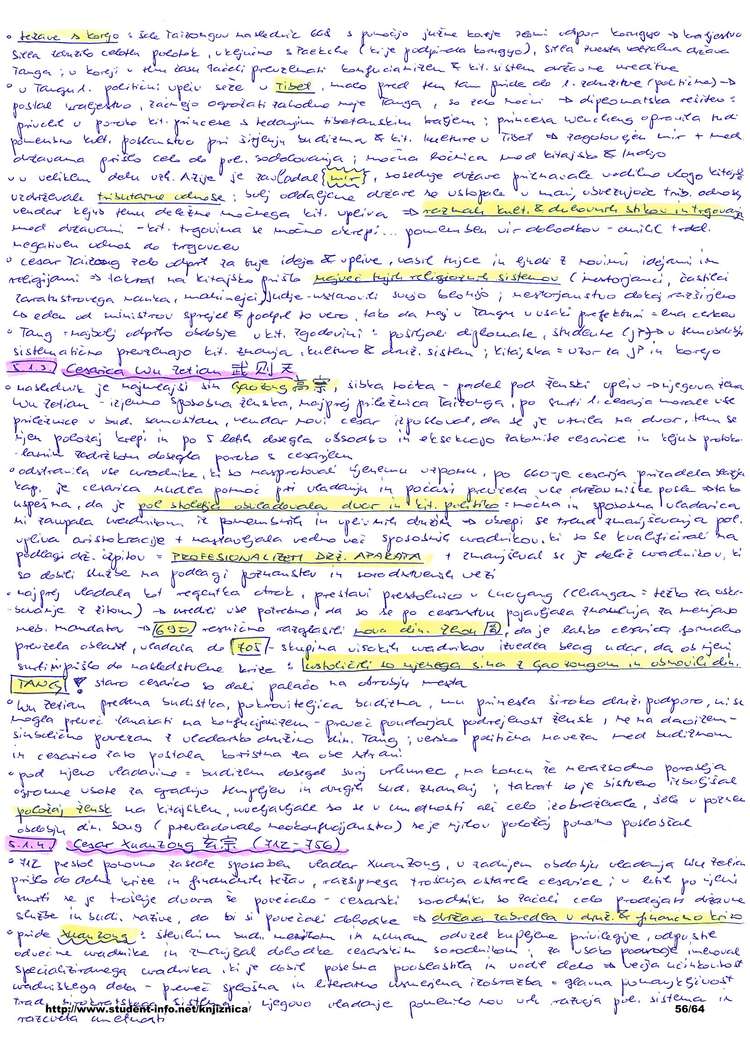 • težave s Korejo : šele Taizongov naslednik 668 s pomočjo južne koreje zlomi odpor Korugyo → kraljestvo
Silla združilo celoten polotok, vključno s Paekche (ki je podpirala Korugyo), Silla zvesta vazalna država
Tanga ; v Koreji v tem času začeli prevzemati konfucianizem & kit. sistem državne ureditve
• v Tangu 1. politični vpliv seže v Tibet, malo pred tem tam pride do 1. združitve (politične) →
postal kraljestvo, začnejo ogrožati zahodno mejo Tanga, so zelo močni → diplomatska rešitev =
privolil v poroko kit. princese s tedanjim tibetanskim kraljem ; princesa Wencheng opravila tudi
pomembno kult. poslanstvo pri širjenju budizma & kit. kulture v Tibet → zagotovljen mir + med
državama prišlo celo do pol. sodelovanja ; močna ločnica med Kitajsko & Indijo
• v velikem delu vzh. Azije je zavladal mir, sosednje države priznavale vodilno vlogo Kitajske
vzdrževale tributarne odnose ; bolj oddaljene države so vstopale v manj obvezujoče trib. odnose,
vendar kljub temu deležne močnega kit. vpliva → razmah kult. & duhovnih stikov in trgovanja
med državami - kit. trgovina se močno okrepi... pomemben vir dohodkov - omilil trad.
negativen odnos do trgovcev
• cesar Taizong zelo odprt za tuje ideje & vplive, vabil tujce in ljudi z novimi idejami in
religijami → takrat na Kitajsko prišlo največ tujih religioznih sistemov (nestorjanci, častilci
zaratustrovega nauka, manihejci, Judje - ustanovili svojo kolonijo ; nestorjanstvo dokaj razširjeno
↳ eden od ministrov sprejel & podprl to vero, tako da naj v Tangu v vsaki prefekturi = ena cerkev
• Tang = najbolj odprto obdobje v kit. zgodovini = pošiljali diplomate, študente (JP) → v temo obdobju
sistematično prevzemajo kit. znanja, kulturo & druž. sistem ; Kitajska = vzor za JP in Korejo
5.1.3. Cesarica Wu Zetian 武則天
• naslednik je najmlajši sin Gaozong 高宗, šibka točka - padel pod ženski vpliv → njegova žena
Wu Zetian - izjemno sposobna ženska, najprej priležnica Taizonga, po smrti l. cesarja morale vse
priležnice v bud. samostan, vendar novi cesar izposloval, da se je vrnila na dvor, tam se
njen položaj krepi in po 5 letih dosegla obsodbo in eksekucijo zakonite cesarice in kljub protoko-
larnim zadržkom dosegla poroko s cesarjem
• odstranila vse uradnike, ki so nasprotovali njenemu vzponu, po 660-je cesarja prizadela
kap, je cesarica nudila pomoč pri vladanju in počasi prevzela vse državniške posle → tako
uspešna, da je pol stoletja obvladovala dvor in kit. politiko = močna in sposobna vladarica
ni zaupala uradnikom iz pomembnih in vplivnih družin → okrepi se trend zmanjševanja pol.
vpliva aristokracije + nastavljala vedno več sposobnih uradnikov, ki so se kvalificirali na
podlagi drž. izpitov = PROFESIONALIZEM DRŽ. APARATA + zmanjševal se je delež uradnikov, ki
so dobili službe na podlagi poznanstev in sorodstvenih vezi
• najprej vladala kot regentka otrok, prestavi prestolnico v Luoyang (Changan = težko za oskr-
bovanje z žitom) → urediti vse potrebno, da so se po cesarstvu pojavljala znamenja za menjavo
neb. mandata → 690 resnično razglasili novo din. Zhou 周, da je lahko cesarica formalno
prevzela oblast, vladala do 705 - skupina visokih uradnikov izvedla beag udar, da ob njeni
smrti ni prišlo do nasledstvene krize = ustoličili so njenega sina z Gaozongom in obnovili din.
TANG ! staro cesarico so dali palačo na obrobju mesta
• Wu Zetian predana budistka, pokroviteljica budizma, mu prinesla široko druž. podporo, ni se
mogla preveč zanašati na konfucijanizem - preveč poudarjal podrejenost žensk, ne na daoizem -
simbolično povezan z vladarsko družino din. Tang ; versko politična naveza med budizmom
in cesarico zato postala koristna za obe strani
• pod njeno vladavino = budizem dosegel svoj vrhunec, na koncu že nerazsodno porablja
ogromne vsote za gradnjo templjev in drugih bud. znamenj ; takrat so je bistveno izboljšal
položaj žensk na Kitajskem, uveljavljale so se v umetnosti ali celo izobraževale, šele v poznem
obdobju din. Song (prevladovalo neokonfucijanstvo) se je njihov položaj ponovno poslabšal
5.1.4. Cesar Xuanzong 玄宗 (712-756)
• 712 prestol ponovno zasede sposoben vladar Xuanzong, v zadnjem obdobju vladanja Wu Zetian
prišlo do dalne krize in finančnih težav, razsipnega trošenja ostarele cesarice ; v letih po njeni
smrti se je trošenje dvora še povečalo - cesarski sorodniki so začeli celo prodajati državne
službe in budi. nazive, da bi si povečali dohodke → država zabredla v druž. & finančno krizo
• pride Xuanzong : številnim bud. menihom in nunam odvzel kupljene privilegije, odpustil
odvečne uradnike in zmanjšal dohodke cesarskim sorodnikom ; za vsako področje imenoval
specializiranega uradnika, ki je dobil posebna pooblastila in vodil delo → večja učinkovitost
uradniškega dela - preveč splošna in literarno usmerjena izobrazba = glavna pomanjkljivost
trad. birokratskega sistema ; njegovo vladanje pomenilo nov vrh razvoja pol. sistema in
razcveta umetnosti
http://www.student-info.net/knjiznica/
56/64